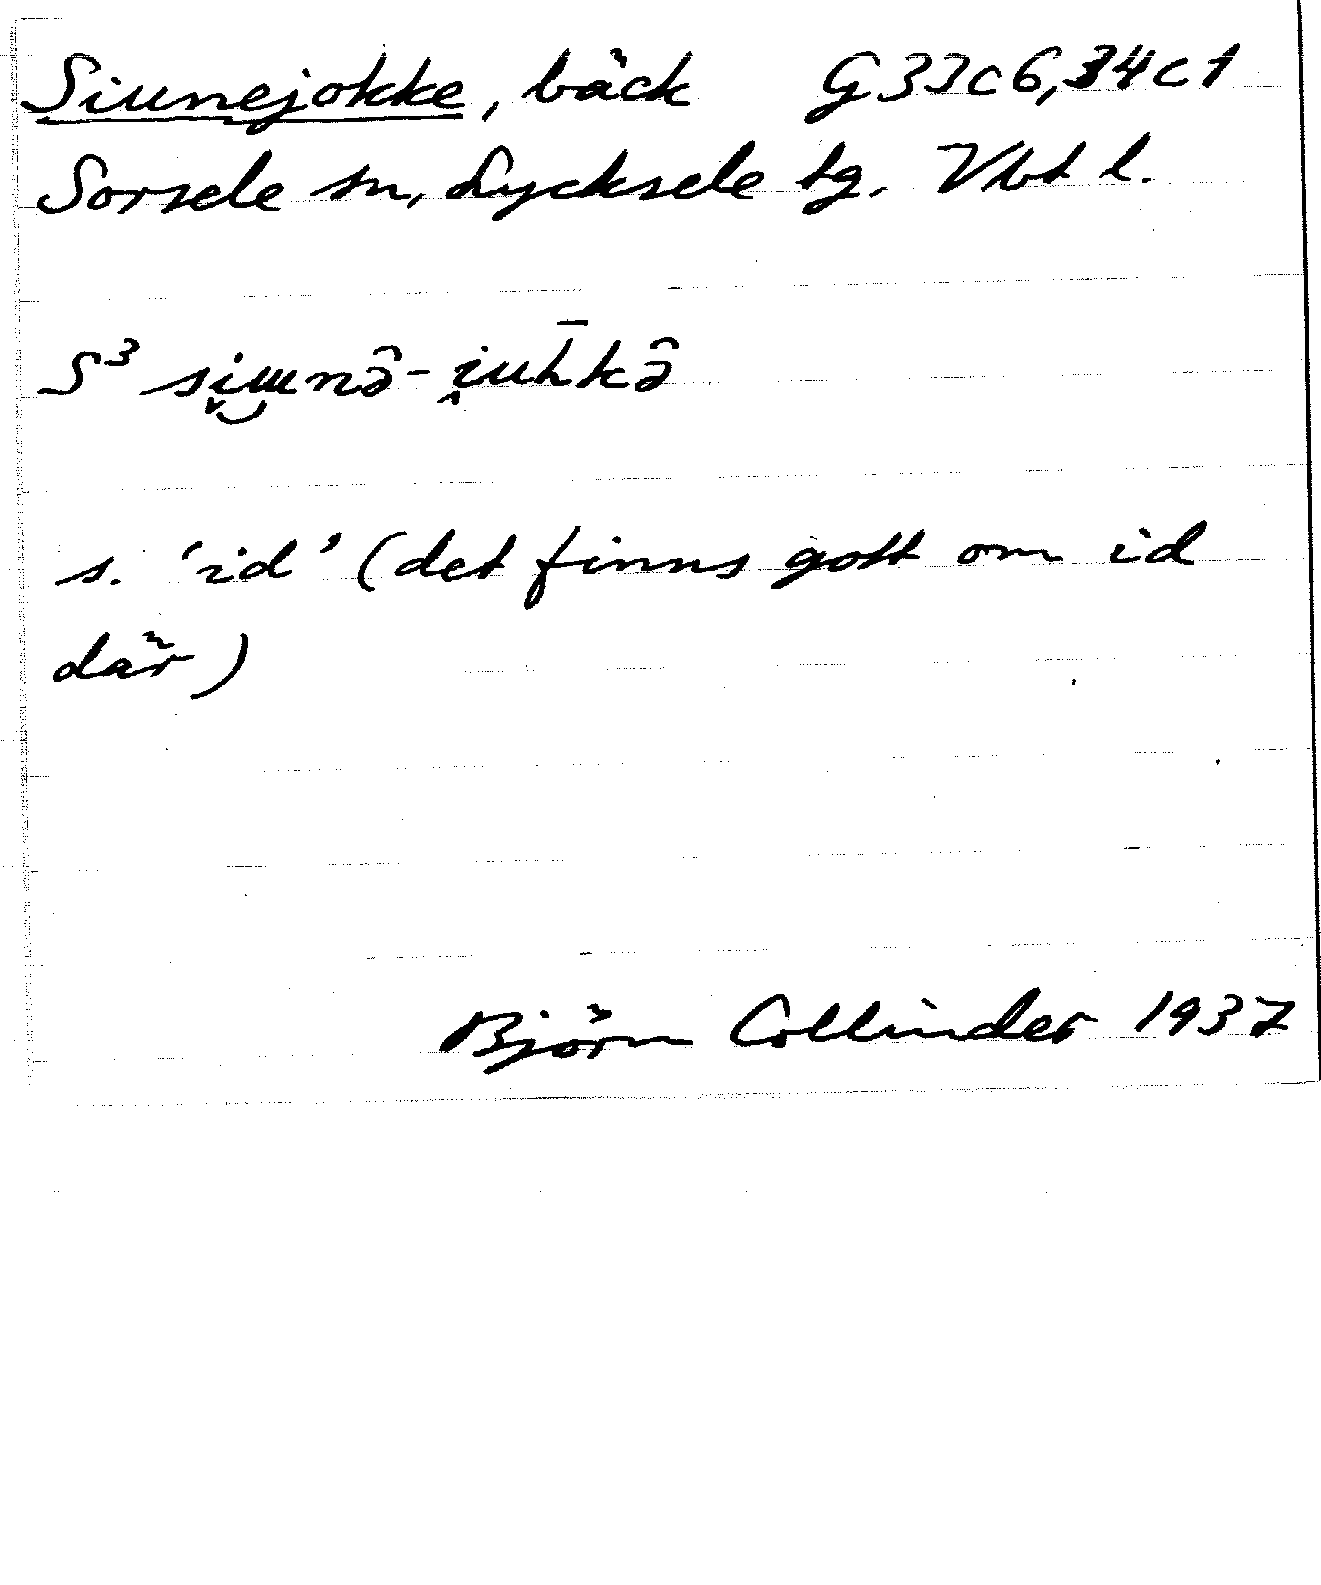 Siunejokke, bäck G33c6,34c1
Sorsele sn, Lycksele tg. Vbt l.
S³
s. ‘id’ (det finns gott om id
där)
Björn Collinder 1937